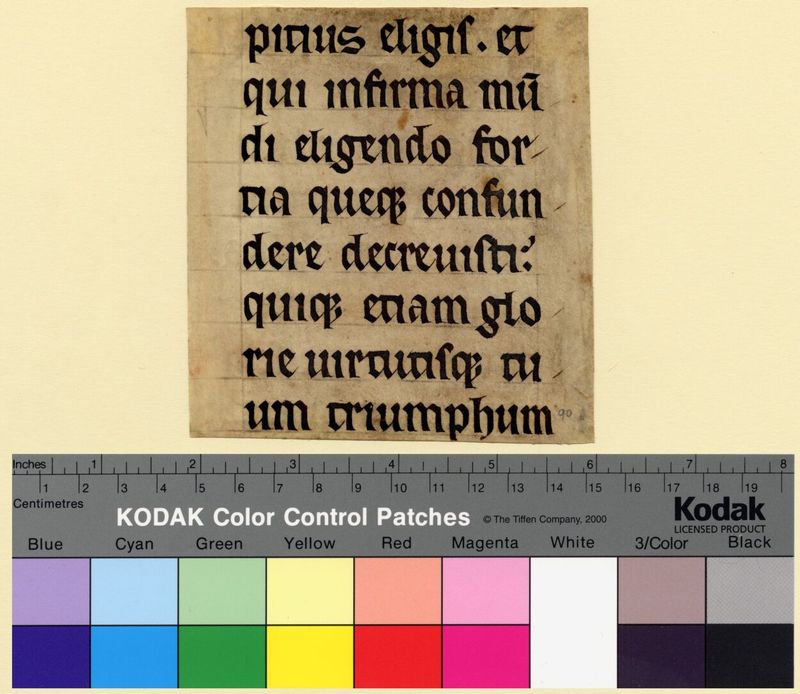 pitius eligis. et
qui infirma mū
di eligendo for
tia queqꝫ confun
dere decreuisti:
quiqꝫ etiam glo
rie uirtutisqꝫ tu
um triumphum
90
Inches 1 2 3 4 5 6 7 8
1 2 3 4 5 6 7 8 9 10 11 12 13 14 15 16 17 18 19
Centimetres
KODAK Color Control Patches © The Tiffen Company, 2000 Kodak
LICENSED PRODUCT
Blue Cyan Green Yellow Red Magenta White 3/Color Black